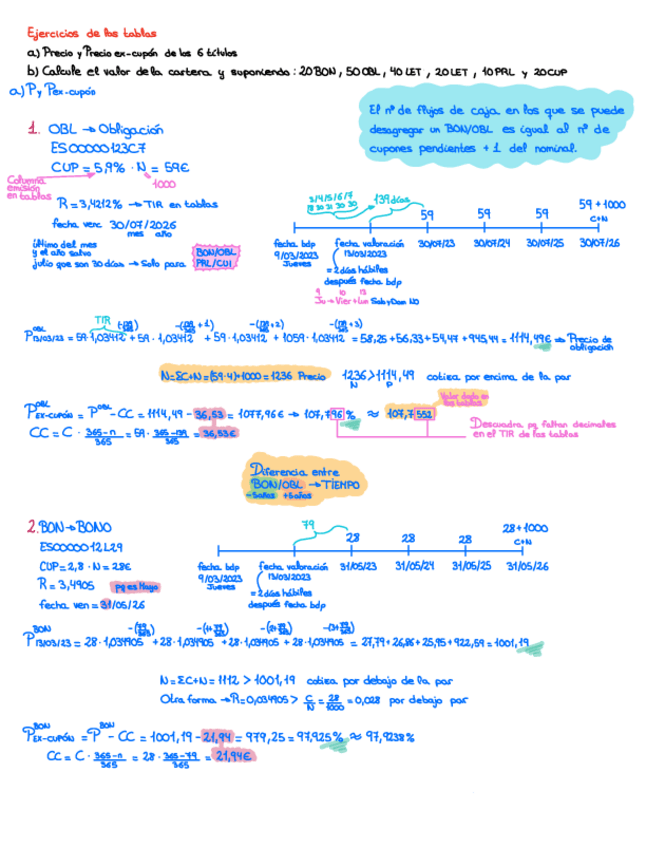 Ejercicios de las tablas
a) Precio y Precio ex-cupón de los 6 títulos
b) Calcule el valor de la cartera y suponiendo: 20 BON, 50 OBL, 40 LET, 20 LET, 10 PRL y 20 CUP
a) P y Pex-cupón
El nº de flujos de caja en los que se puede
desagregar un BON/OBL es igual al nº de
cupones pendientes + 1 del nominal.
1. OBL → Obligación
ES00000123C7
CUP = 5,9% · N = 59€
1000
Columna
emisión
en tablas
R = 3,4212% → TIR en tablas
fecha venc 30/07/2026
mes año
último del mes
y el año salvo
julio que son 30 días → Solo para
BON/OBL
PRL/CUI
3/4/5/6/7
18 30 31 30 30
139 días
59
59
59
59 + 1000
C+N
fecha bdp
9/03/2023
Jueves
fecha valoración
13/03/2023
= 2 días hábiles
después fecha bdp
30/07/23
30/07/24
30/07/25
30/07/26
9 10 13
Ju → Vier + Lun Sab y Dom NO
TIR
P OBL 13/03/23 = 59 · 1,03412 -(139/365) + 59 · 1,03412 -(139/365 + 1) + 59 · 1,03412 -(139/365 + 2) + 1059 · 1,03412 -(139/365 + 3) = 58,25 + 56,33 + 54,47 + 945,44 = 1114,49€ → Precio de obligación
N = ΣC+N = (59·4) + 1000 = 1236 Precio
1236 > 1114,49 cotiza por encima de la par
N P
P OBL EX-CUPÓN = P OBL - CC = 1114,49 - 36,53 = 1077,96€ → 107,796% ≈ 107,7552
Valor dado en
las tablas
CC = C · 365-n/365 = 59 · 365-139/365 = 36,53€
Descuadra pq faltan decimales
en el TIR de las tablas
Diferencia entre
BON/OBL → TIEMPO
-5años +5años
2. BON → BONO
ES00000012L29
CUP = 2,8 · N = 28€
R = 3,4905 pq es Mayo
fecha ven = 31/05/26
79
28
28
28
28 + 1000
C+N
fecha bdp
9/03/2023
Jueves
fecha valoración
13/03/2023
= 2 días hábiles
después fecha bdp
31/05/23
31/05/24
31/05/25
31/05/26
P BON 13/03/23 = 28 · 1,034905 -(79/365) + 28 · 1,034905 -(1+79/365) + 28 · 1,034905 -(2+79/365) + 28 · 1,034905 -(3+79/365) = 27,79 + 26,86 + 25,95 + 922,59 = 1001,19
N = ΣC+N = 1112 > 1001,19 cotiza por debajo de la par
Otra forma → R = 0,034905 > C/N = 28/1000 = 0,028 por debajo par
P BON EX-CUPÓN = P BON - CC = 1001,19 - 21,94 = 979,25 = 97,925% ≈ 97,9238%
CC = C · 365-n/365 = 28 · 365-79/365 = 21,94€